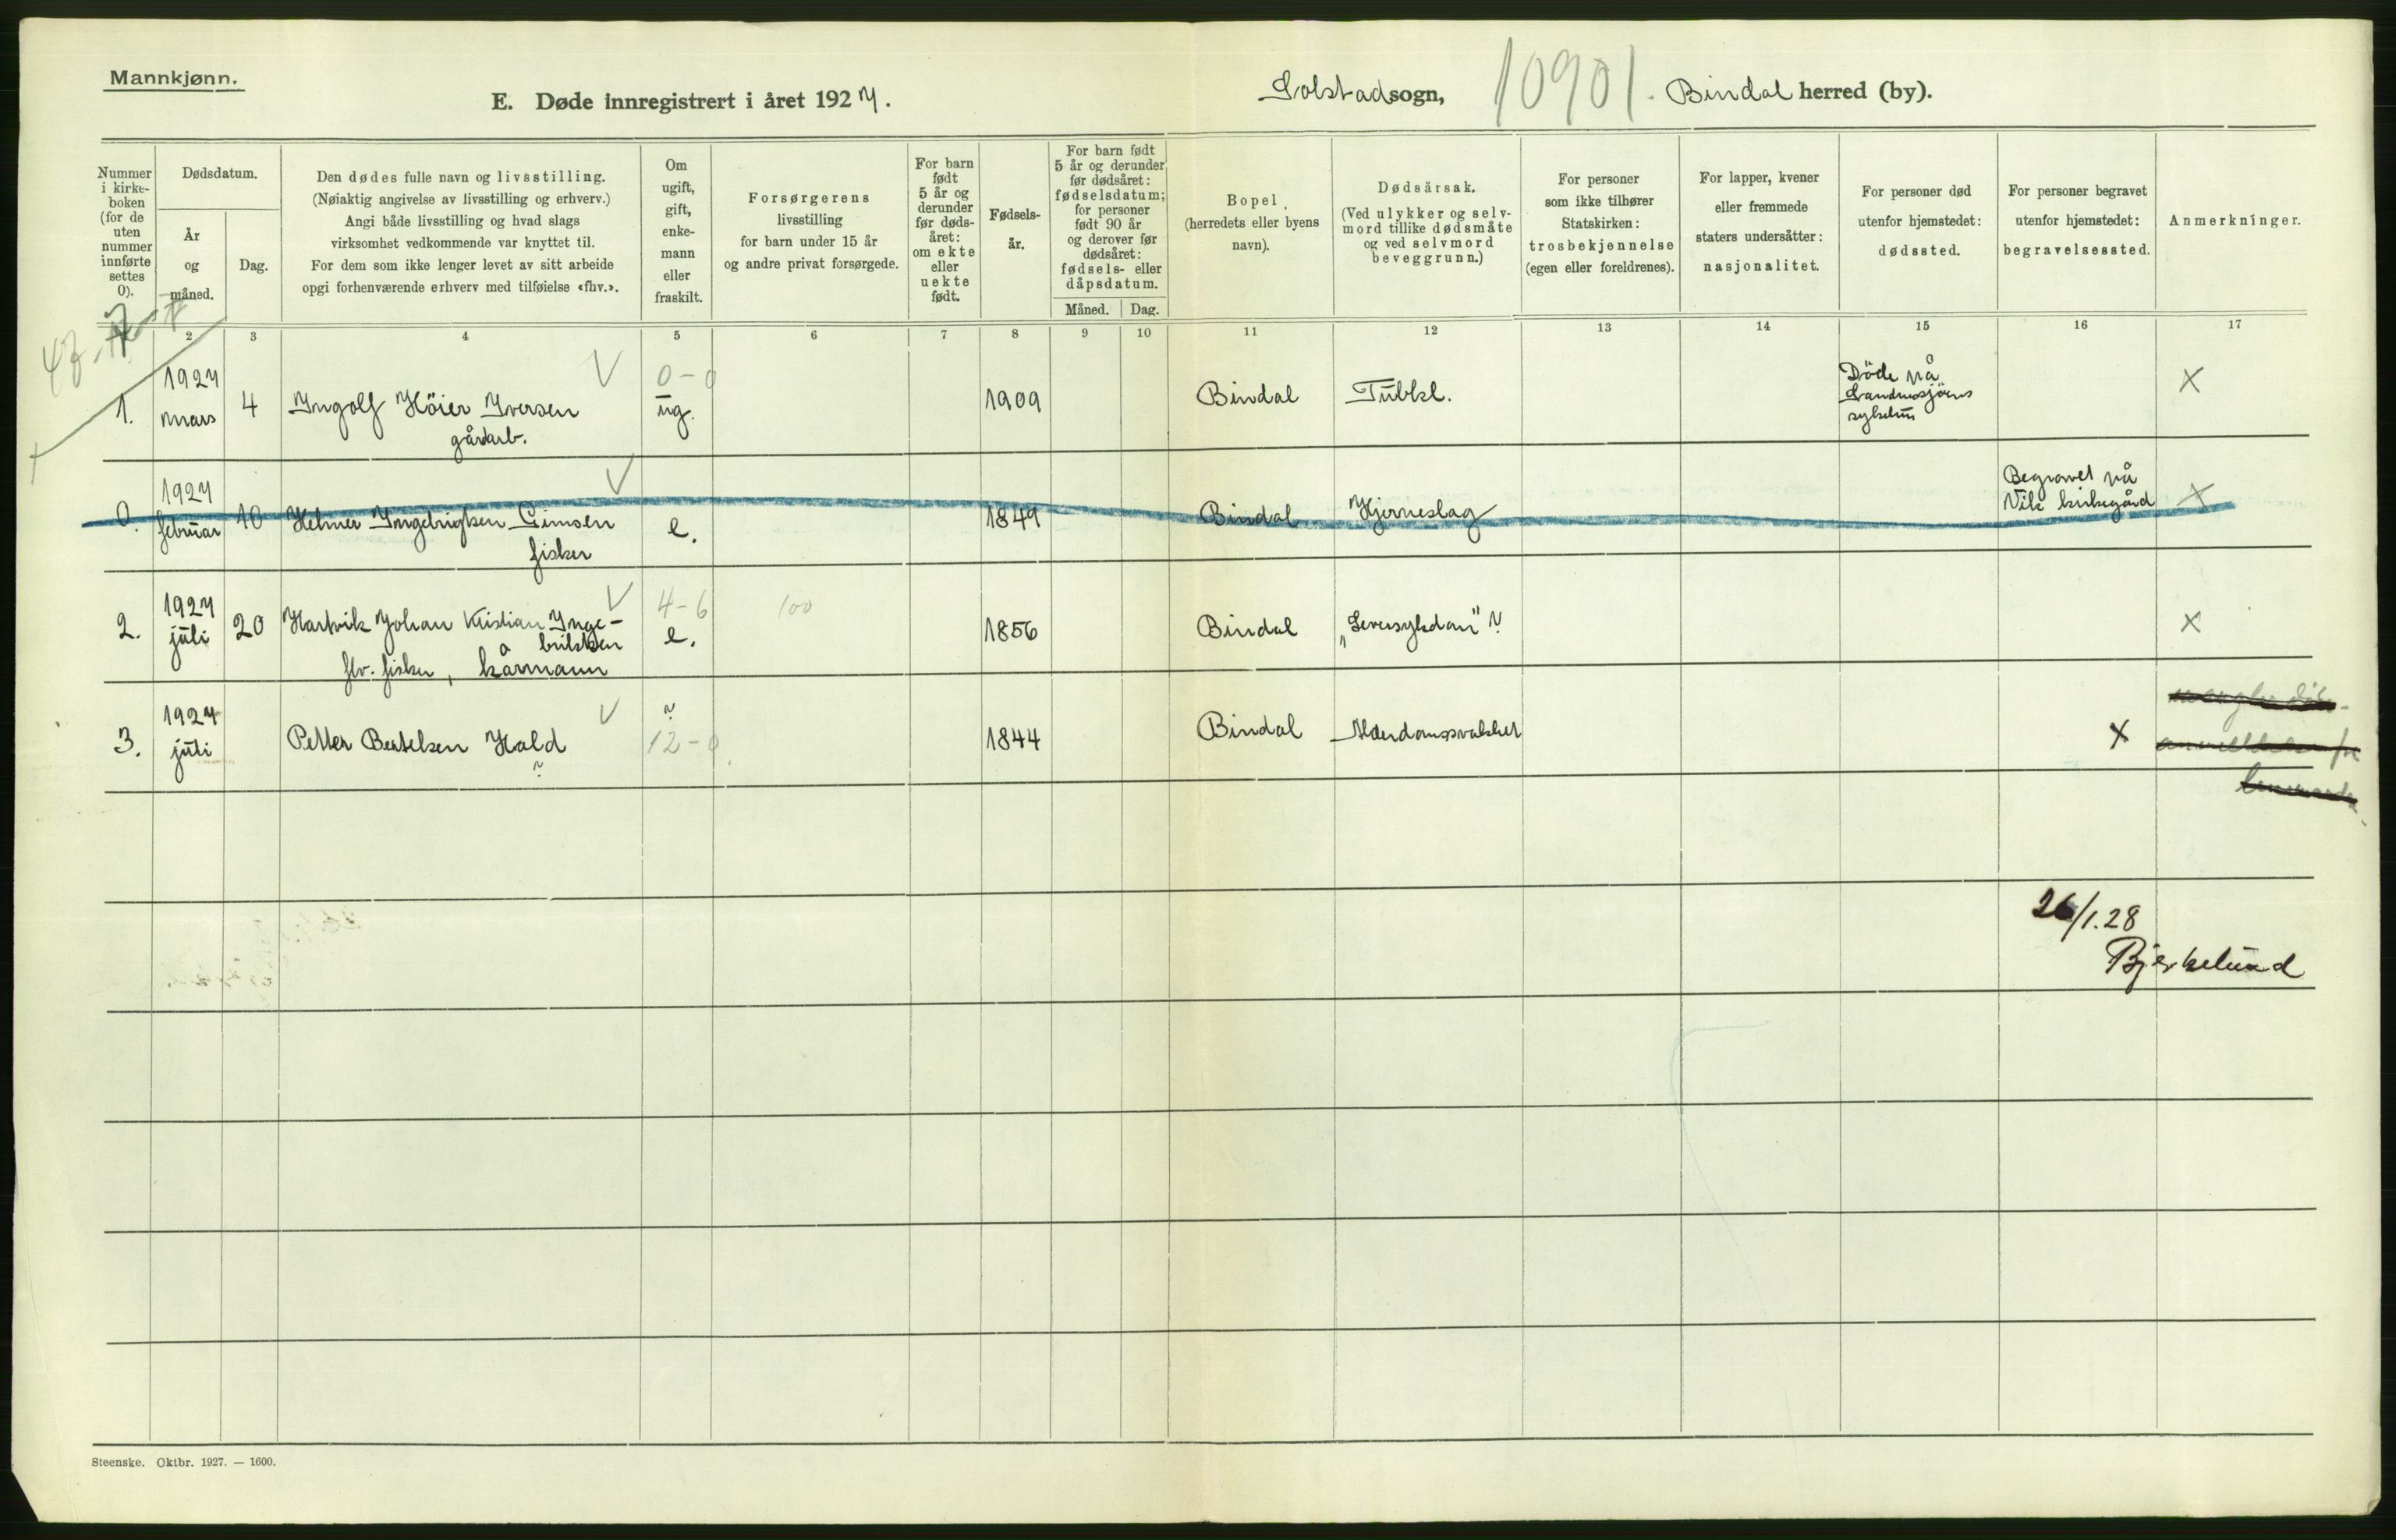 Mannkjønn.
E. Døde innregistrert i året 1927.
Solstad sogn, 10901. Bindal herred (by).
Nummer i kirke- boken (for de uten nummer innførte settes 0).
Dødsdatum.
År og måned.
Dag.
Den dødes fulle navn og livsstilling.
(Nøiaktig angivelse av livsstilling og erhverv.)
Angi både livsstilling og hvad slags
virksomhet vedkommende var knyttet til.
For dem som ikke lenger levet av sitt arbeide
opgi forhenværende erhverv med tilføielse «fhv.».
Om ugift, gift, enke- mann eller fraskilt.
Forsørgerens
livsstilling
for barn under 15 år
og andre privat forsørgede.
For barn født 5 år og derunder før døds- året: om ekte eller uekte født.
Fødsels- år.
For barn født 5 år og derunder før dødsåret: fødselsdatum; for personer født 90 år og derover før dødsåret: fødsels- eller dåpsdatum.
Måned. Dag.
Bopel
(herredets eller byens
navn).
Dødsårsak.
(Ved ulykker og selv-
mord tillike dødsmåte
og ved selvmord
beveggrunn.)
For personer
som ikke tilhører
Statskirken:
trosbekjennelse
(egen eller foreldrenes).
For lapper, kvener
eller fremmede
staters undersåtter:
nasjonalitet.
For personer død
utenfor hjemstedet:
dødssted.
For personer begravet
utenfor hjemstedet:
begravelsessted.
Anmerkninger.
2 3 4 5 6 7 8 9 10 11 12 13 14 15 16 17
1. 1927 mars 4 Ingolf Höier Iversen gårdarb. 0-0 ug. 1909 Bindal Tubkl. Döde på Sandnessjöens sykehus X
0. 1927 februar 10 Helmer Ingebrigtsen Gimsen fisker e. 1849 Bindal Hjerneslag Begravet på Vik kirkegård X
2. 1927 juli 20 Hartvik Johan Kristian Inge- briktsen fhv. fisker, kårmann 4-6 e. 100 1856 Bindal „Leversykdom" ? X
3. 1927 juli Petter Bertelsen Hald ? ? 12-0 1844 Bindal Alderdomssvakhet X
26/1.28
Bjerkelund
Steenske. Oktbr. 1927. — 1600.